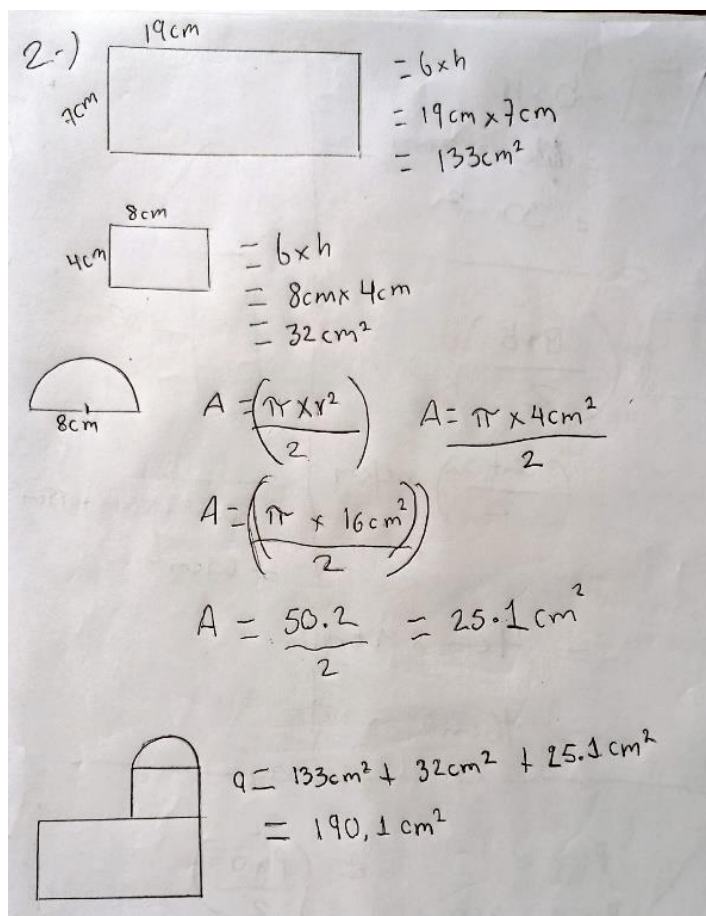 2-)
19cm
7cm
= b×h
= 19cm×7cm
= 133cm²
8cm
4cm
= b×h
= 8cm×4cm
= 32cm²
8cm
A=(π×r²/2) A=π×4cm²/2
A=((π × 16cm²)/2)
A = 50.2/2 = 25.1cm²
a= 133cm²+ 32cm² + 25.1cm²
= 190,1 cm²